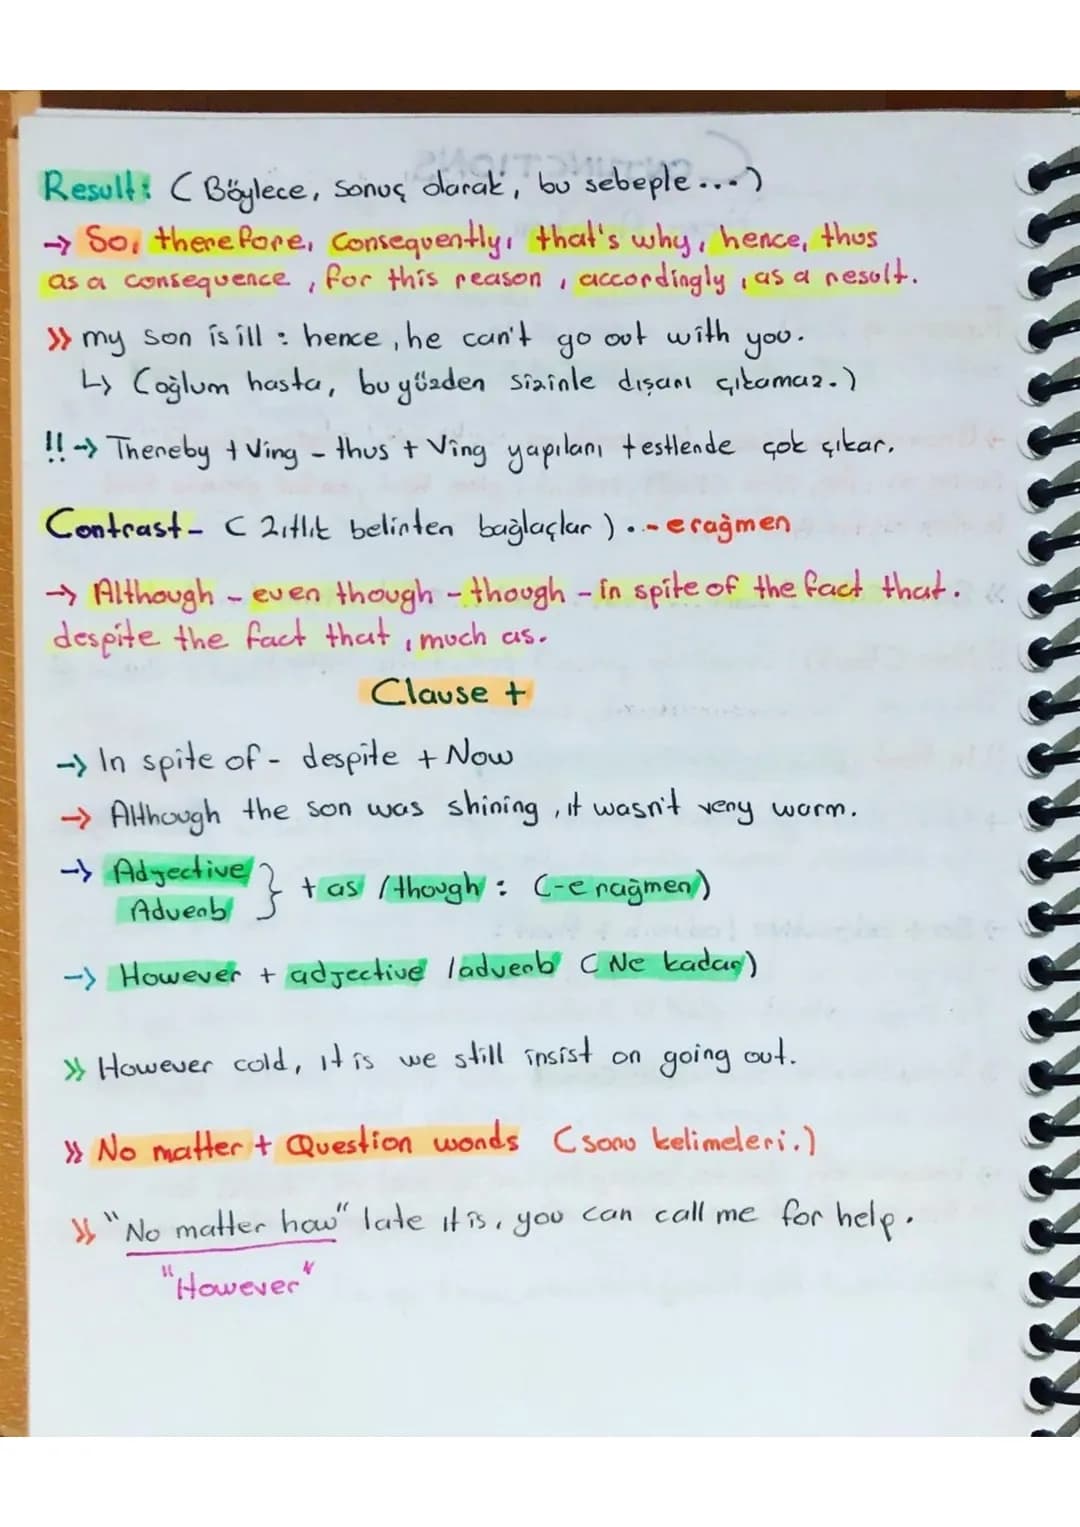 Result: (Böylece, sonuç olarak, bu sebeple...)
→ So, therefore, Consequently, that's why, hence, thus
as a consequence, for this reason, accordingly, as a result.
» my son is ill: hence, he can't go out with you.
↳ (oğlum hasta, bu yüzden sizinle dışarı çıkamaz.)
!! → Thereby + Ving - thus + Ving yapıları testlerde çok çıkar.
Contrast - (Zıtlık belirten bağlaçlar) ..- e rağmen
→ Although - even though - though - in spite of the fact that.
despite the fact that, much as.
Clause +
→ In spite of - despite + Now
→ Although the son was shining, it wasn't very warm.
→ Adjective
Adverb } + as / though: (-e rağmen)
→ However + adjective / adverb (Ne kadar)
» However cold, it is we still insist on going out.
» No matter + Question words (soru kelimeleri.)
» "No matter how" late it is, you can call me for help.
"However"